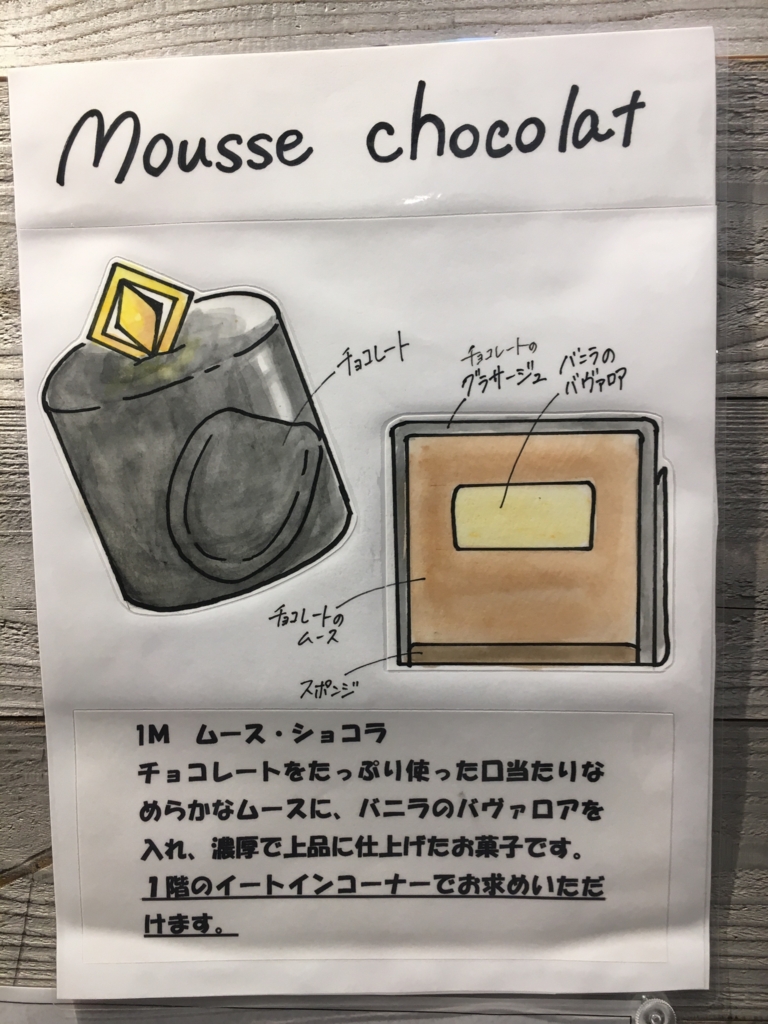 Mousse chocolat
チョコレート
チョコレートの
グラサージュ
バニラの
バヴァロア
チョコレートの
ムース
スポンジ
1M ムース・ショコラ
チョコレートをたっぷり使った口当たりな
めらかなムースに、バニラのバヴァロアを
入れ、濃厚で上品に仕上げたお菓子です。
1階のイートインコーナーでお求めいただ
けます。